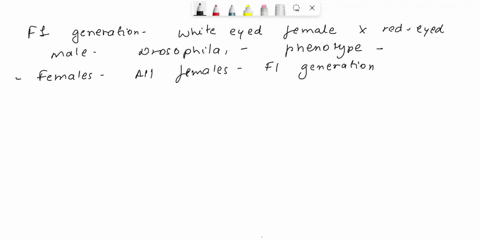 F1 generation- White eyed female x red-eyed
male- Drosophila, - phenotype -
- females - All females - F1 generation